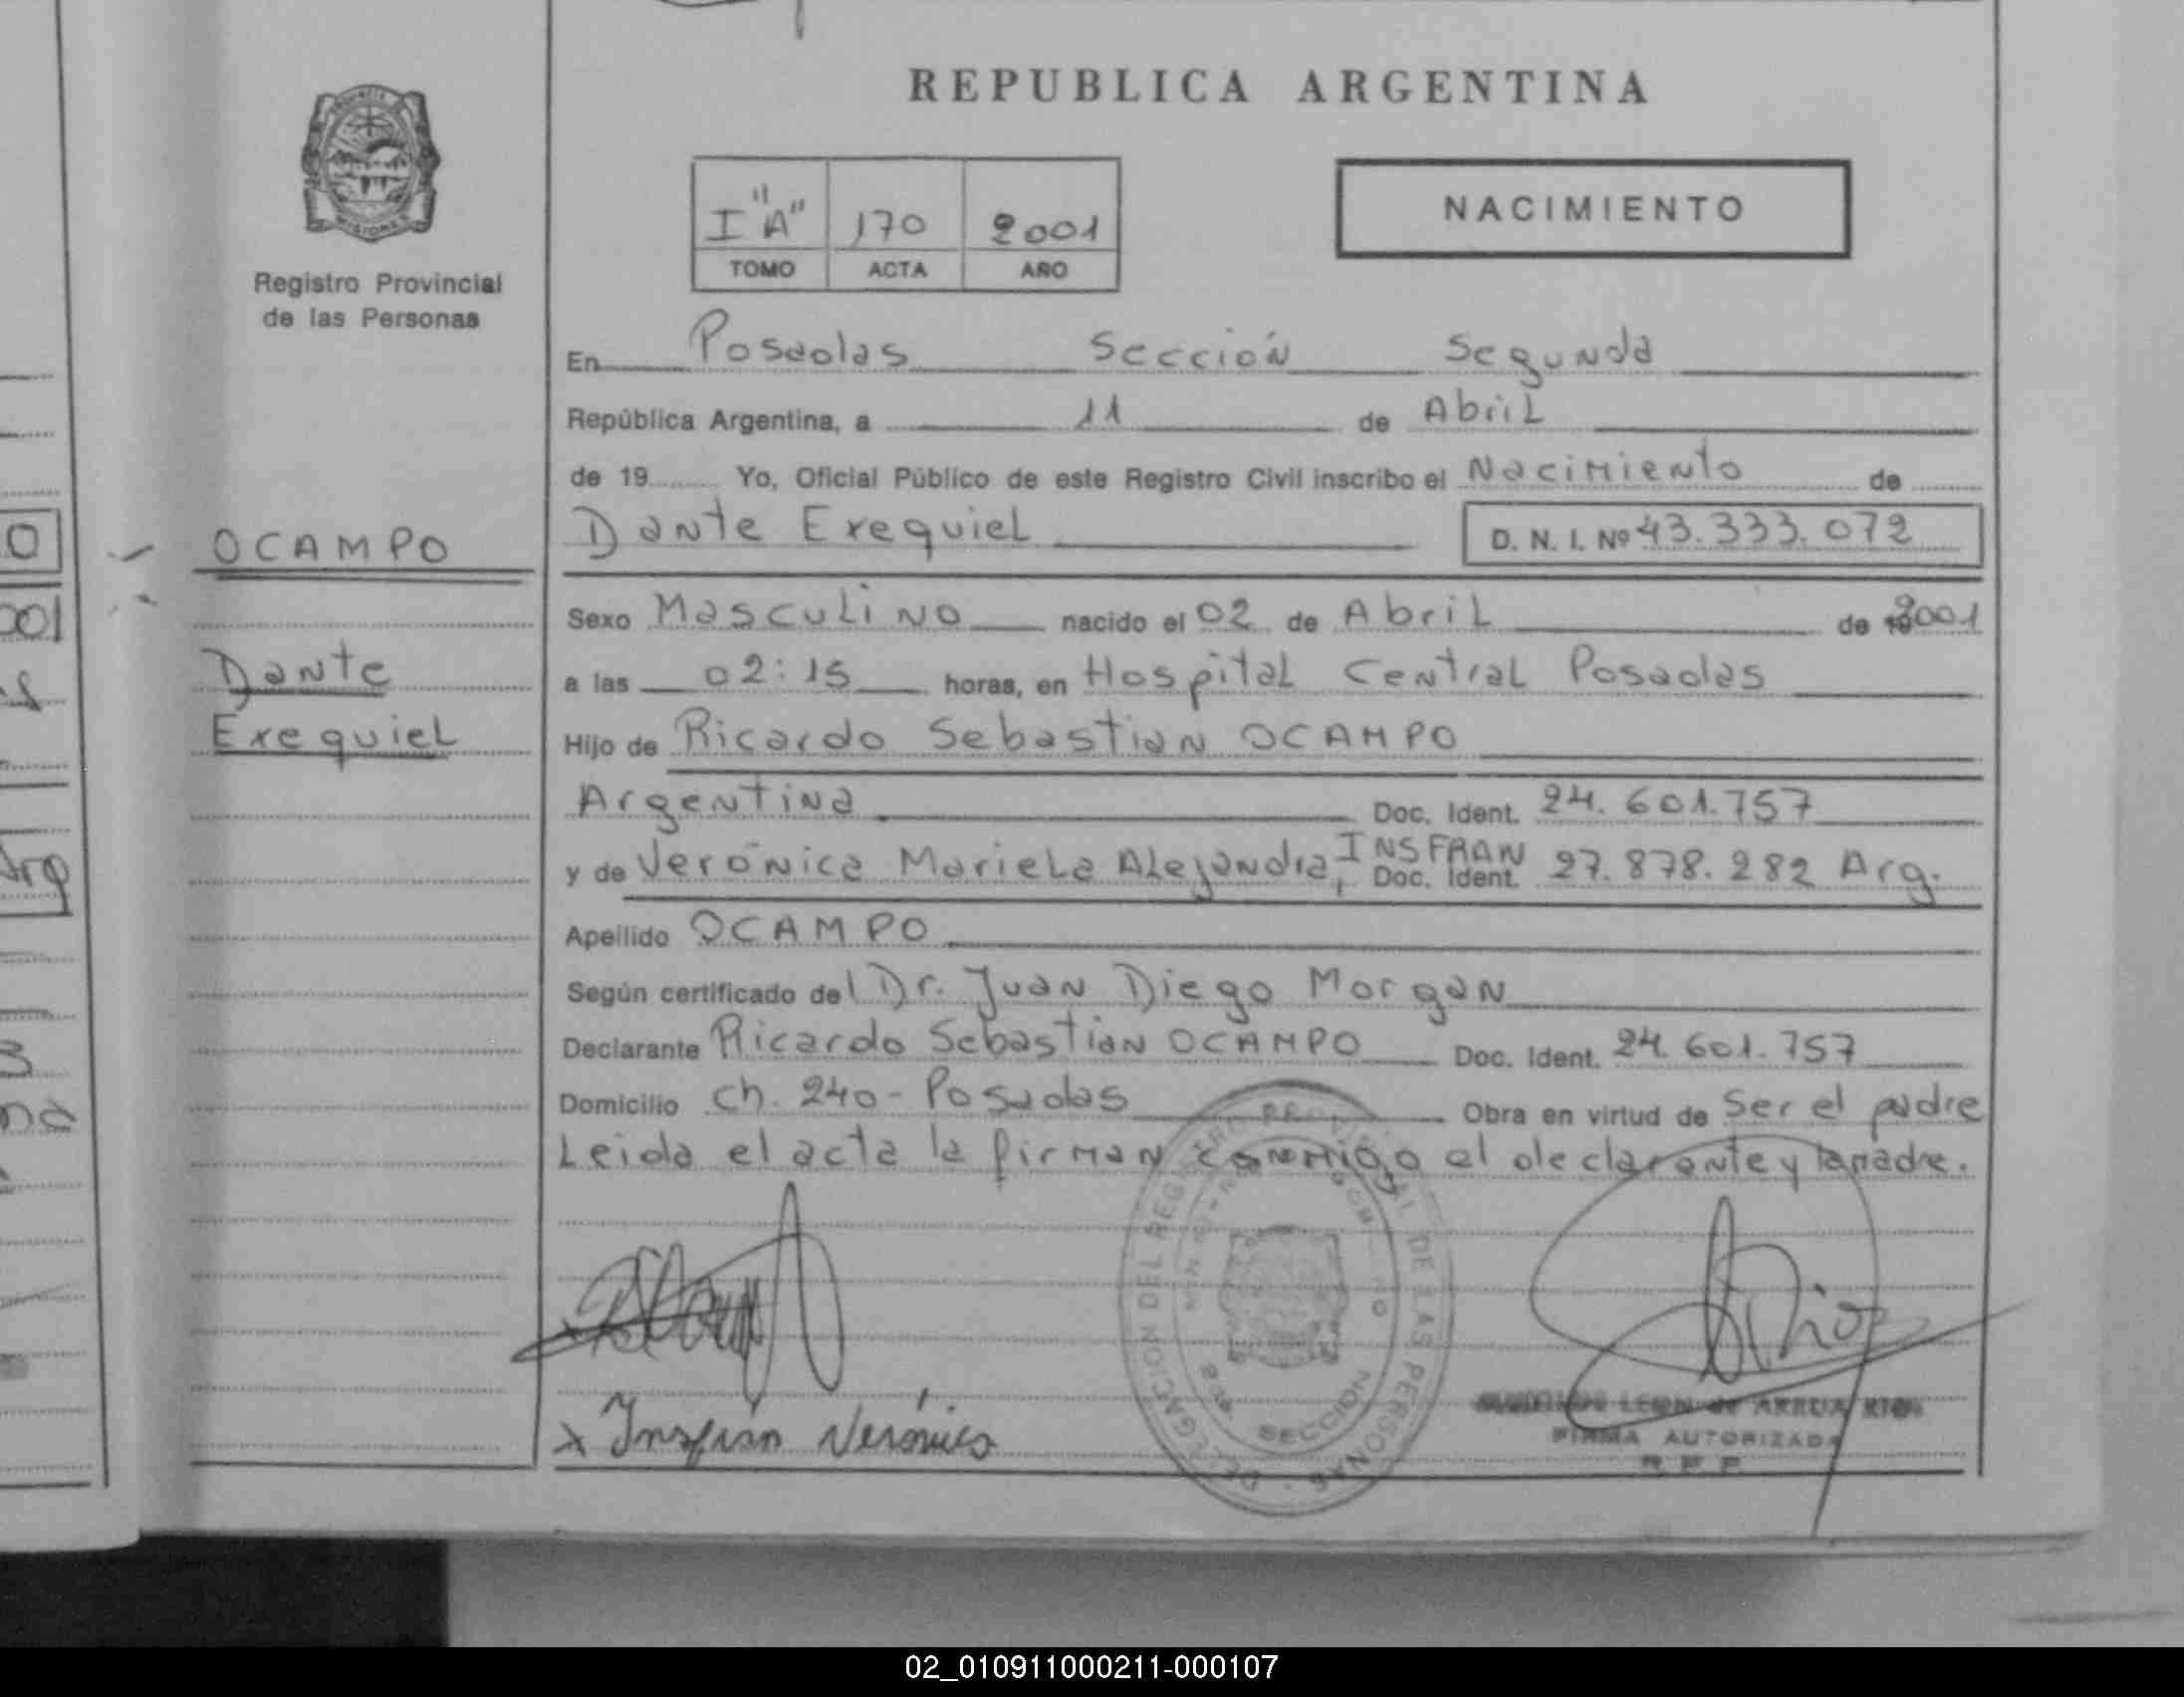 REPUBLICA ARGENTINA
I "A" 170 2001
TOMO ACTA AÑO
NACIMIENTO
Registro Provincial
de las Personas
En Posadas Sección Segunda
República Argentina, a 11 de Abril
de 19 Yo, Oficial Público de este Registro Civil inscribo el Nacimiento de
OCAMPO
Dante Exequiel D. N. I. Nº 43.333.072
Sexo Masculino nacido el 02 de Abril de 2001
Dante
Exequiel
a las 02:15 horas, en Hospital Central Posadas
Hijo de Ricardo Sebastian OCAMPO
Argentina Doc. Ident. 24.601.757
y de Verónica Mariela Alejandra, INSFRAN Doc. Ident. 27.878.282 Arg.
Apellido OCAMPO
Según certificado del Dr. Juan Diego Morgan
Declarante Ricardo Sebastian OCAMPO Doc. Ident. 24.601.757
Domicilio Ch. 240 - Posadas Obra en virtud de Ser el padre
Leida el acta la firman conmigo el declarante y la madre.
x Insfrán Verónica
DELEGACION DEL REGISTRO PROVINCIAL DE LAS PERSONAS
SECCION
LEON de ARRUA
FIRMA AUTORIZADA
R P P
02_010911000211-000107